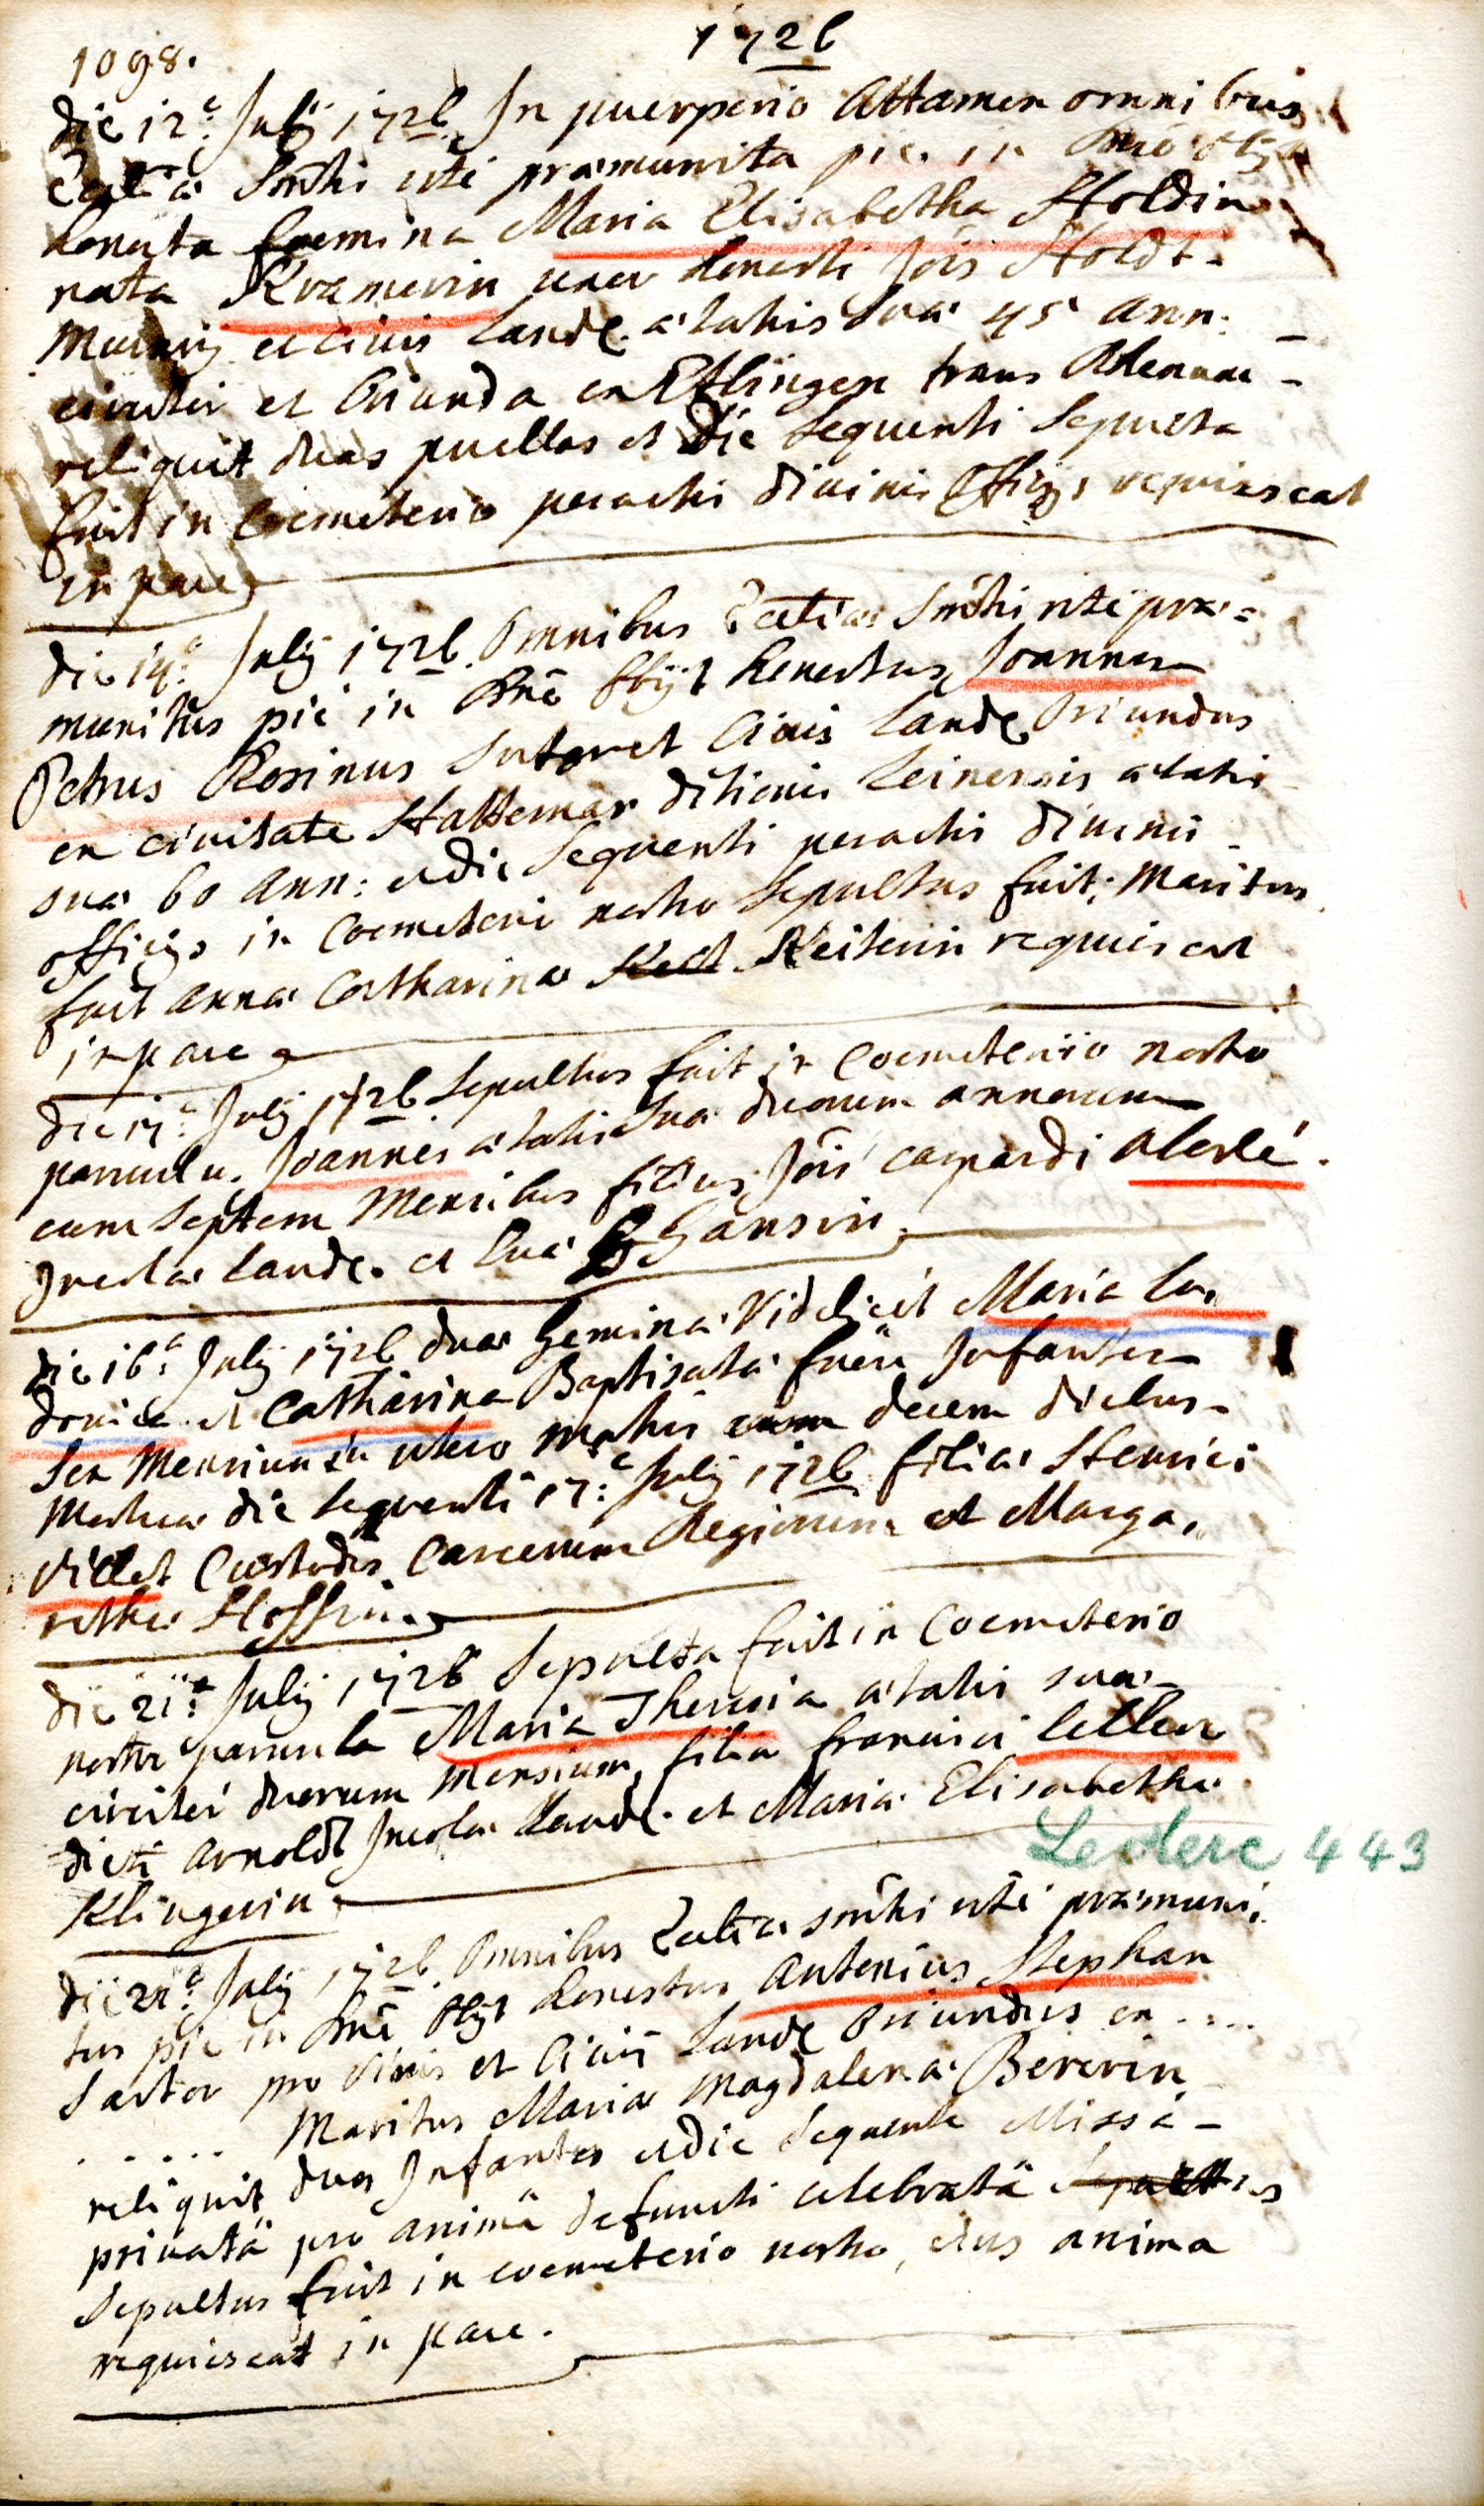 1726
1098.
die 12.a July 1726 In puerperio attamen omnibus
Ecclae Smtis rite praemunita pie in
honesta foemina Maria Elisabetha Holdin
nata Kramerin uxor honesti Jois Holdt-
et civis Land. aetatis suae 45 ann:
circiter et oriunda ex Etlingen trans Rhenum -
reliquit duas puellas et die sequenti sepulta
fuit in coemeterio peractis divinis officys requiescat
in pace
die 14.a July 1726 Omnibus Ecclae Smtis rite prae=
munitus pie in Dno obijt honestus Joannes
Petrus Rosinus sutor et civis Land. oriundus
ex civitate Hattemar ditionis Leinensis aetatis
suae 60 ann: et die sequenti peractis divinis
officys in Coemeterio nostro sepultus fuit; Maritus
fuit annae Catharinae Keitterin requiescat
in pace
die 17.a July 1726 sepultus fuit in Coemeterio nostro
parvulus Joannes aetatis suae duorum annorum
cum septem Mensibus filius Jois
Incolae Land. et suae Gansin.
die 16.a July 1726 duae Geminae videlicet Maria Lu,,
dovica et Catharina Baptisatae fuere Infantes
sex Mensium in utero matris cum decem diebus-
Mortuae die sequenti 17.a July 1726 filiae Henrici
Villet Custodis Carcerum Regiorum et Marga,,
rethae Hoffin.
die 21.a July 1726 Sepulta fuit in Coemeterio
nostro parvula Maria Theresia aetatis suae-
circiter duorum Mensium, filia francisci
dicti arnoldt Incolae Land. et Mariae Elisabethae
Leclerc 443
Klingerin
die July 1726 Omnibus Ecclae Smtis rite praemuni,,
tus pie in Dno obyt honestus antonius Stephan
Sartor pro viris et civis Land. oriundus ex ....
. . . . . Maritus Mariae Magdalenae Bererin
reliquit duos Infantes et die sequente Missa -
privatâ pro animâ defuncti celebratâ
Sepultus fuit in coemeterio nostro, eius anima
requiescat in pace.